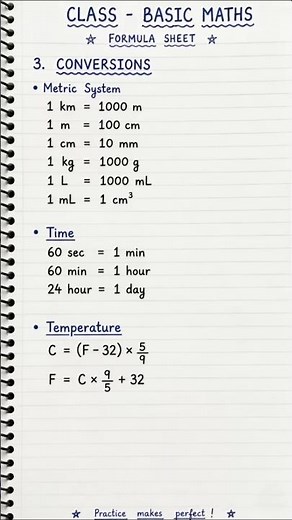 CLASS - BASIC MATHS
☆ FORMULA SHEET ☆
3. CONVERSIONS
• Metric System
1 km = 1000 m
1 m = 100 cm
1 cm = 10 mm
1 kg = 1000 g
1 L = 1000 mL
1 mL = 1 cm³
• Time
60 sec = 1 min
60 min = 1 hour
24 hour = 1 day
• Temperature
C = (F - 32) × 5/9
F = C × 9/5 + 32
☆ Practice makes perfect ! ☆